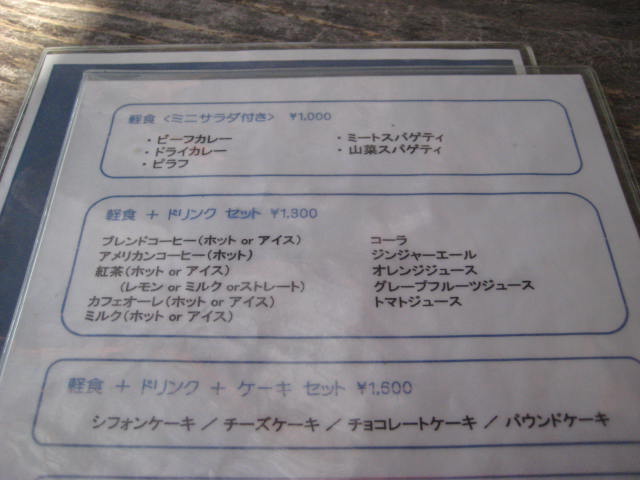 軽食 <ミニサラダ付き> ¥1,000
・ビーフカレー ・ミートスパゲティ
・ドライカレー ・山菜スパゲティ
・ピラフ
軽食 + ドリンク セット ¥1,300
ブレンドコーヒー(ホット or アイス) コーラ
アメリカンコーヒー(ホット) ジンジャーエール
紅茶(ホット or アイス) オレンジジュース
(レモン or ミルク orストレート) グレープフルーツジュース
カフェオーレ(ホット or アイス) トマトジュース
ミルク(ホット or アイス)
軽食 + ドリンク + ケーキ セット ¥1,600
シフォンケーキ / チーズケーキ / チョコレートケーキ / パウンドケーキ